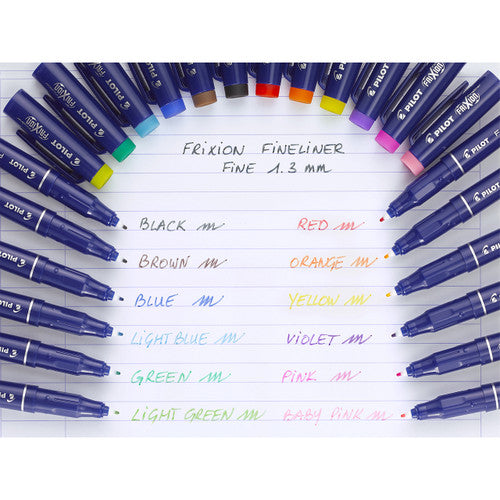 FRIXION FINELINER
FINE 1.3 mm
BLACK
BROWN
BLUE
LIGHT BLUE
GREEN
LIGHT GREEN
RED
ORANGE
YELLOW
VIOLET
PINK
BABY PINK
PILOT
PILOT
PILOT
PILOT
PILOT
PILOT
PILOT
PILOT
PILOT
FRIXION
FRIXION
FRIXION
FRIXION